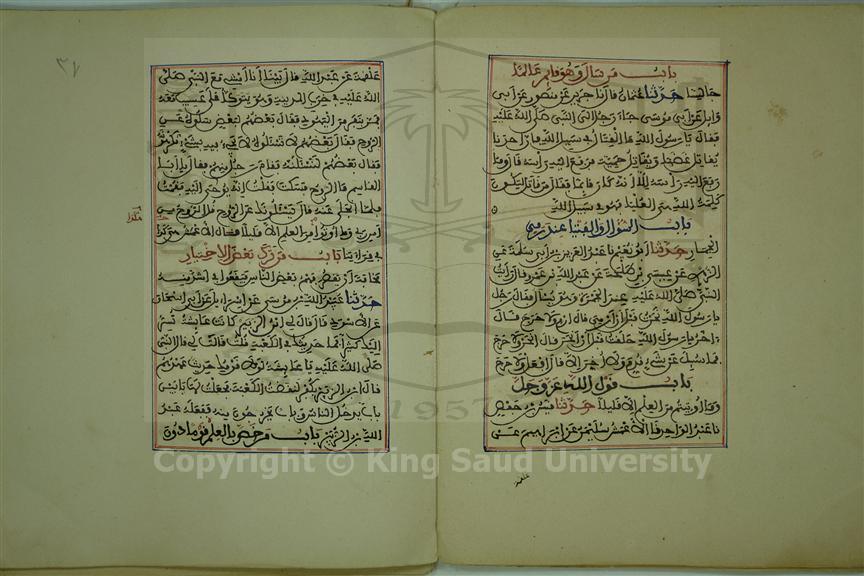 باب من سأل وهو قائم عالما
جالسا حدثنا عثمان قال أنا جرير عن منصور عن أبي
وايل عن أبي موسى جاء رجل إلى النبي صلى الله عليه
فقال يا رسول الله ما القتال في سبيل الله فإن أحدنا
يقاتل غضبا ويقاتل حمية فرفع إليه رأسه قال وما
رفع إليه رأسه إلا أنه كان قائما فقال من قاتل لتكون
كلمة الله هي العليا فهو في سبيل الله
باب السؤال والفتيا عند رمي
الجمار حدثنا أبو نعيم نا عبد العزيز بن أبي سلمة عن
الزهري عن عيسى بن طلحة عن عبد الله بن عمرو قال رأيت
النبي صلى الله عليه عند الجمرة وهو يسأل فقال رجل
يا رسول الله نحرت قبل أن أرمي قال ارم ولا حرج قال
آخر يا رسول الله حلقت قبل أن أنحر قال انحر ولا حرج
فما سئل عن شيء قدم ولا أخر إلا قال افعل ولا حرج
باب قول الله عز وجل
وما أوتيتم من العلم إلا قليلا حدثنا قيس بن حفص
نا عبد الواحد قال نا الأعمش سليمن عن إبراهيم عن
علقمة
٣٧
علقمة عن عبد الله قال بينا أنا أمشي مع النبي صلى
الله عليه في خرب المدينة وهو يتوكأ على عسيب معه
فمر بنفر من اليهود فقال بعضهم لبعض سلوه عن
الروح فقال بعضهم لا تسئلوه لا يجيء فيه بشيء تكرهونه
فقال بعضهم لنسئلنه فقام رجل منهم فقال يا أبا
القاسم ما الروح فسكت فقلت إنه يوحى إليه فقمت
فلما انجلى عنه فقال ويسئلونك عن الروح قل الروح من
أمر ربي وما أوتوا من العلم إلا قليلا قال الأعمش هي كذا
في قراءتنا باب من ترك بعض الاختيار
مخافة أن يقصر فهم بعض الناس فيقعوا في أشد منه
حدثنا عبيد الله بن موسى عن إسرائيل عن أبي إسحاق
عن الأسود قال قال لي ابن الزبير كانت عائشة تسر
إليك كثيرا فما حدثتك في الكعبة قلت قالت لي قال النبي
صلى الله عليه يا عائشة لولا قومك حديث عهدهم
قال ابن الزبير بكفر لنقضت الكعبة فجعلت لها بابين
باب يدخل الناس وباب يخرجون منه ففعله عبد
الله بن الزبير باب من خص بالعلم قوما دون
Copyright © King Saud University
1957